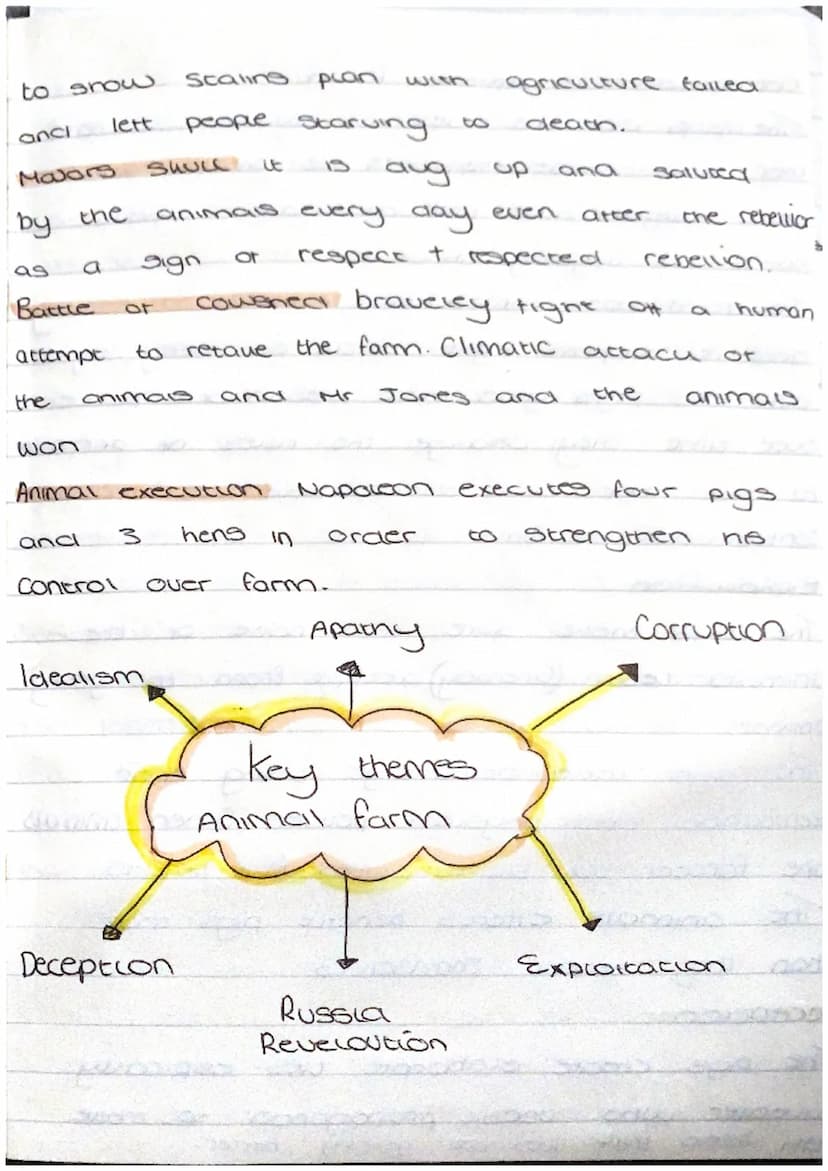 to show Stalins plan with agriculture failed
and left people starving to death.
Majors skull it is dug up and saluted
by the animals every day even after the rebellion
as a sign of respect + respected rebellion.
Battle of cowshed braveley fight off a human
attempt to retake the farm. Climatic attack of
the animals and Mr Jones and the animals
won
Animal execution Napoleon executes four pigs
and 3 hens in order to strengthen his
control over farm.
Apathy
Corruption
Idealism
key themes
Animal farm
Deception
Exploitation
Russia
Reveloution